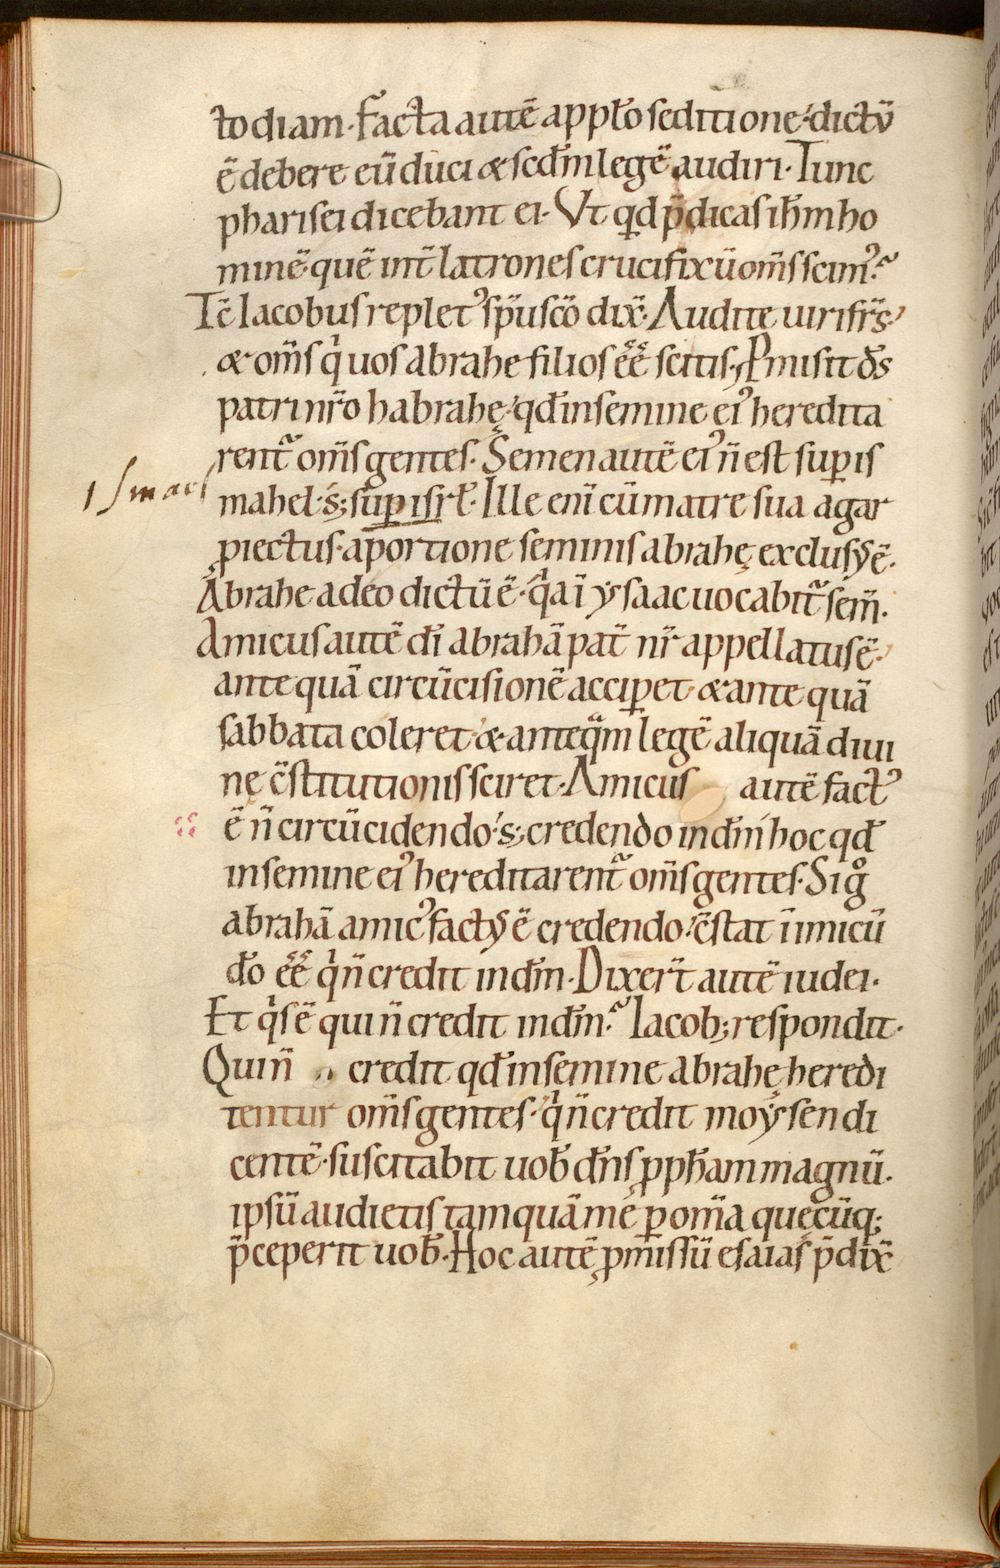 todiam. Facta autē a pp̄lo seditione. dictū
ē debere eū duci & scđm legē audiri. Tunc
pharisei dicebant ei. Vt qđ p̄dicas ih̄m ho
minē. quē int̄ latrones crucifixū om̄s scimꝰ.
Tc̄ Iacobus repletꝰ sp̄u sc̄o dix̄. Audite uiri fr̄s.
& om̄s qͥ uos abrahe filios ēē scitis. Ꝓmisit d̄s
patri nr̄o habrahę. qđ in semine eiꝰ heredita
rent᷑ om̄s gentes. Semen autē eiꝰ n̄ est suꝑ is
Ismael
mahel. s; suꝑ isrł. Ille enī cū matre sua agar
ꝓiectus. a portione seminis abrahę exclusꝰ ē.
Abrahe a deo dictū ē. qͥa ī ysaac uocabit᷑ sem̄.
Amicus autē dī abrahā pat̄ nr̄ appellatus ē.
ante quā circūcisionē acciꝑet. & ante quā
sabbata coleret. & anteqͣm legē aliquā diui
nę c̄stitutionis sciret. Amicus autē factꝰ
ē n̄ circūcidendo. s; credendo in dm̄ hoc qđ
in semine eiꝰ hereditarent᷑ om̄s gentes. Sigͦ
abrahā amicꝰ factꝰ ē credendo. c̄stat inimicū
dō ēē qͥ n̄ credit in dm̄. Dixer̄t autē iudei.
Et qͥs ē qui n̄ credit in dm̄. Iacob; respondit.
Qui n̄ credit qđ in semine abrahę heredi
tentur om̄s gentes. qͥ n̄ credit moysen di
centē. suscitabit uob̄ dn̄s ꝓph̄am magnū.
ipsū audietis tamquā me ꝑ om̄a quęcūq;
p̄ceperit uob̄. Hoc autē ꝓmissū esaias p̄dix̄